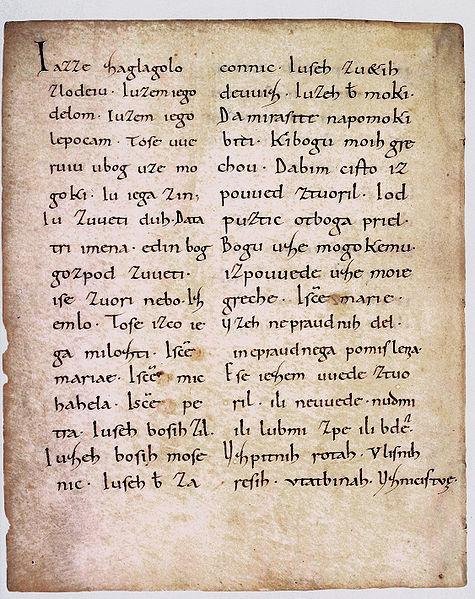 Iazze zaglagolo
zlodeiu · Iuzem iego
delom · Iuzem iego
lepocam · Tose uue
ruiu ubog uze mo
goki · Iu iega Zin,
Iu Zuueti duh · Data
tri imena · edin bog
gozpod Zuueti ·
ise zuori nebo · Izh
emlo · Tose izco ie
ga milozti · Iscē
mariae · Iscē mic
hahela · Iscē pe
tra · Iuseh bosih Zil ·
Iuzheh bosih mose
nic · Iuseh b̄ Za
connic · Iuseh zuetih
deuuiz · Iuzeh b̄ moki ·
Da mi rastte napomoki
biti · Kibogu moih gre
chou · Dabim cisto iz
pouued ztuoril · Iod
puztic otboga priel ·
Bogu uzhe mogokemu ·
izpouuede uzhe moie
greche · Iscē marie ·
Uzeh nepraudnih del ·
inepraudnega pomislena ·
Ese iezem uuede ztuo
ril · ili neuuede · nudmi
ili lubmi zpe ili bdē ·
Uzpitnih rotah · Vlisnih
resih · vtatbinah · Uznicistue ·